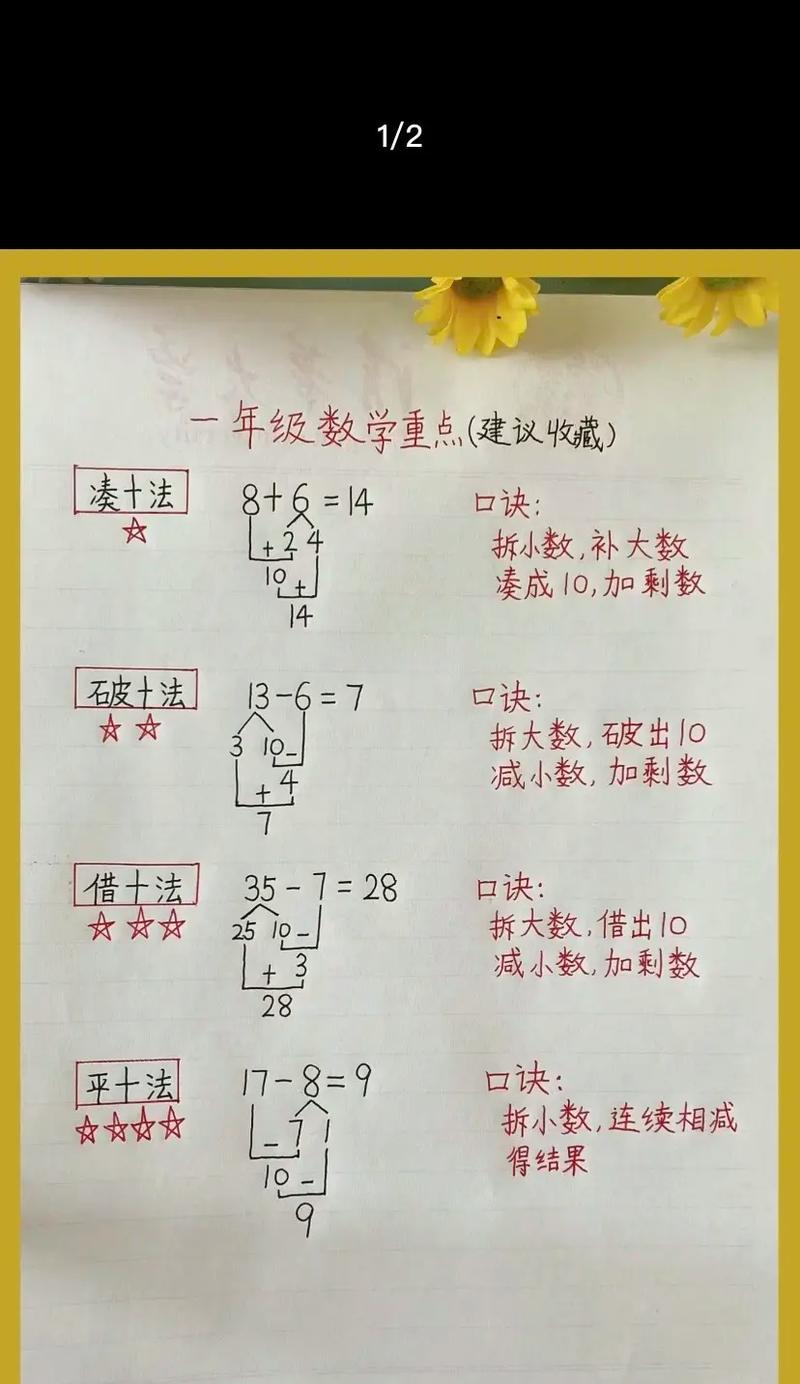 1/2
一年级数学重点(建议收藏)
凑十法
☆
8+6=14
+2 4
10 +
14
口诀:
拆小数,补大数
凑成10,加剩数
破十法
☆☆
13-6=7
3 10-
+4
7
口诀:
拆大数,破出10
减小数,加剩数
借十法
☆☆☆
35-7=28
25 10-
+3
28
口诀:
拆大数,借出10
减小数,加剩数
平十法
☆☆☆☆
17-8=9
-7 1
10-
9
口诀:
拆小数,连续相减
得结果